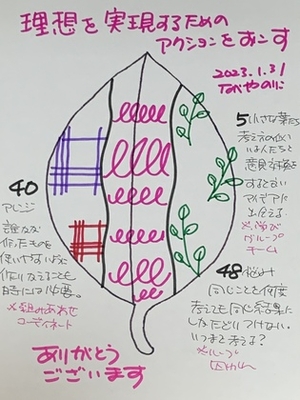 理想を実現するための
アクションをおこす
2023.1.31
5 小さな葉たち
考え方の似ている
人たちと
意見交換を
するとよい
アイデアに
出会える
※学び
グループ
チーム
40
アレンジ
誰かが
作ったものを
使いやすいように
作りかえることも
時には必要。
※組みあわせ
コーディネート
48 悩み
同じことを何度
考えても同じ結果に
しかたどりつけない。
いつまで考える?
※ループ
ありがとう
ございます